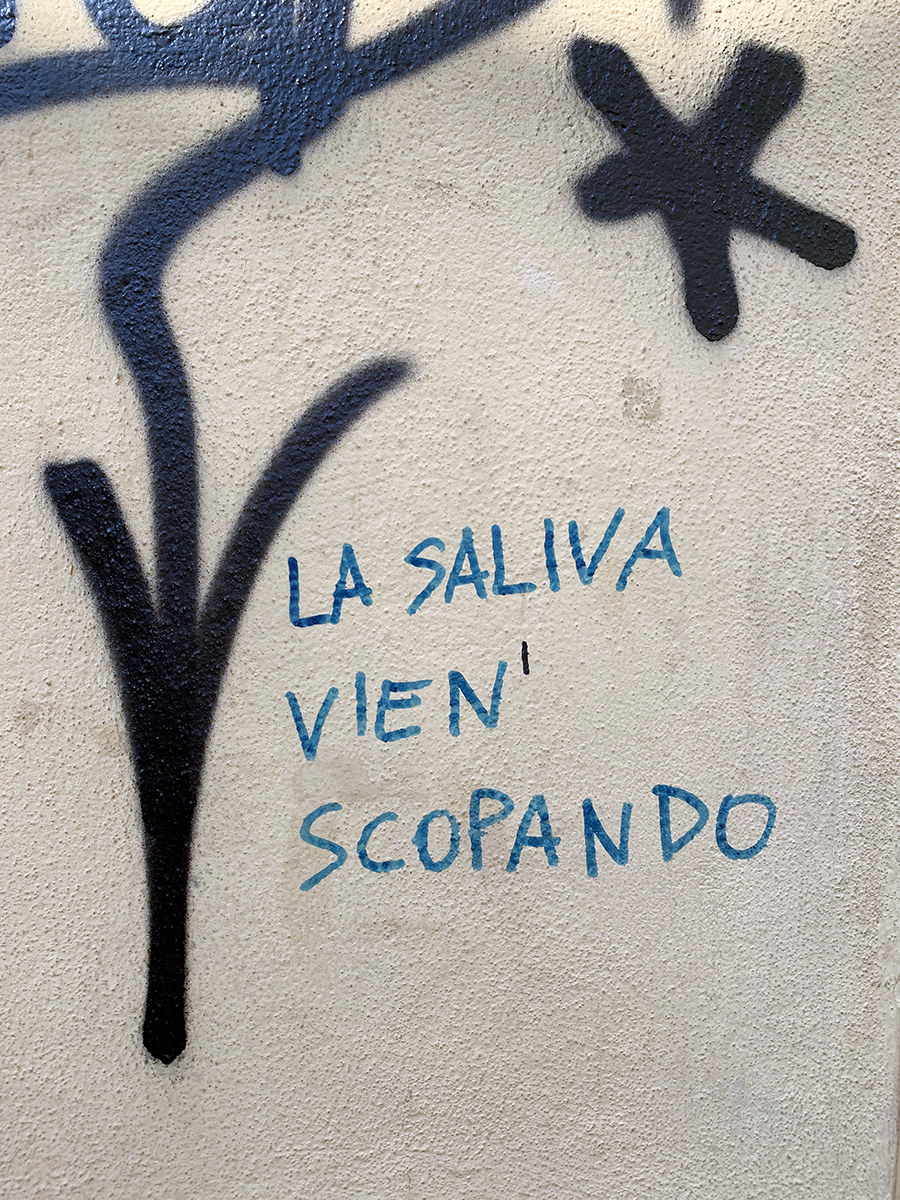 LA SALIVA
VIEN'
SCOPANDO